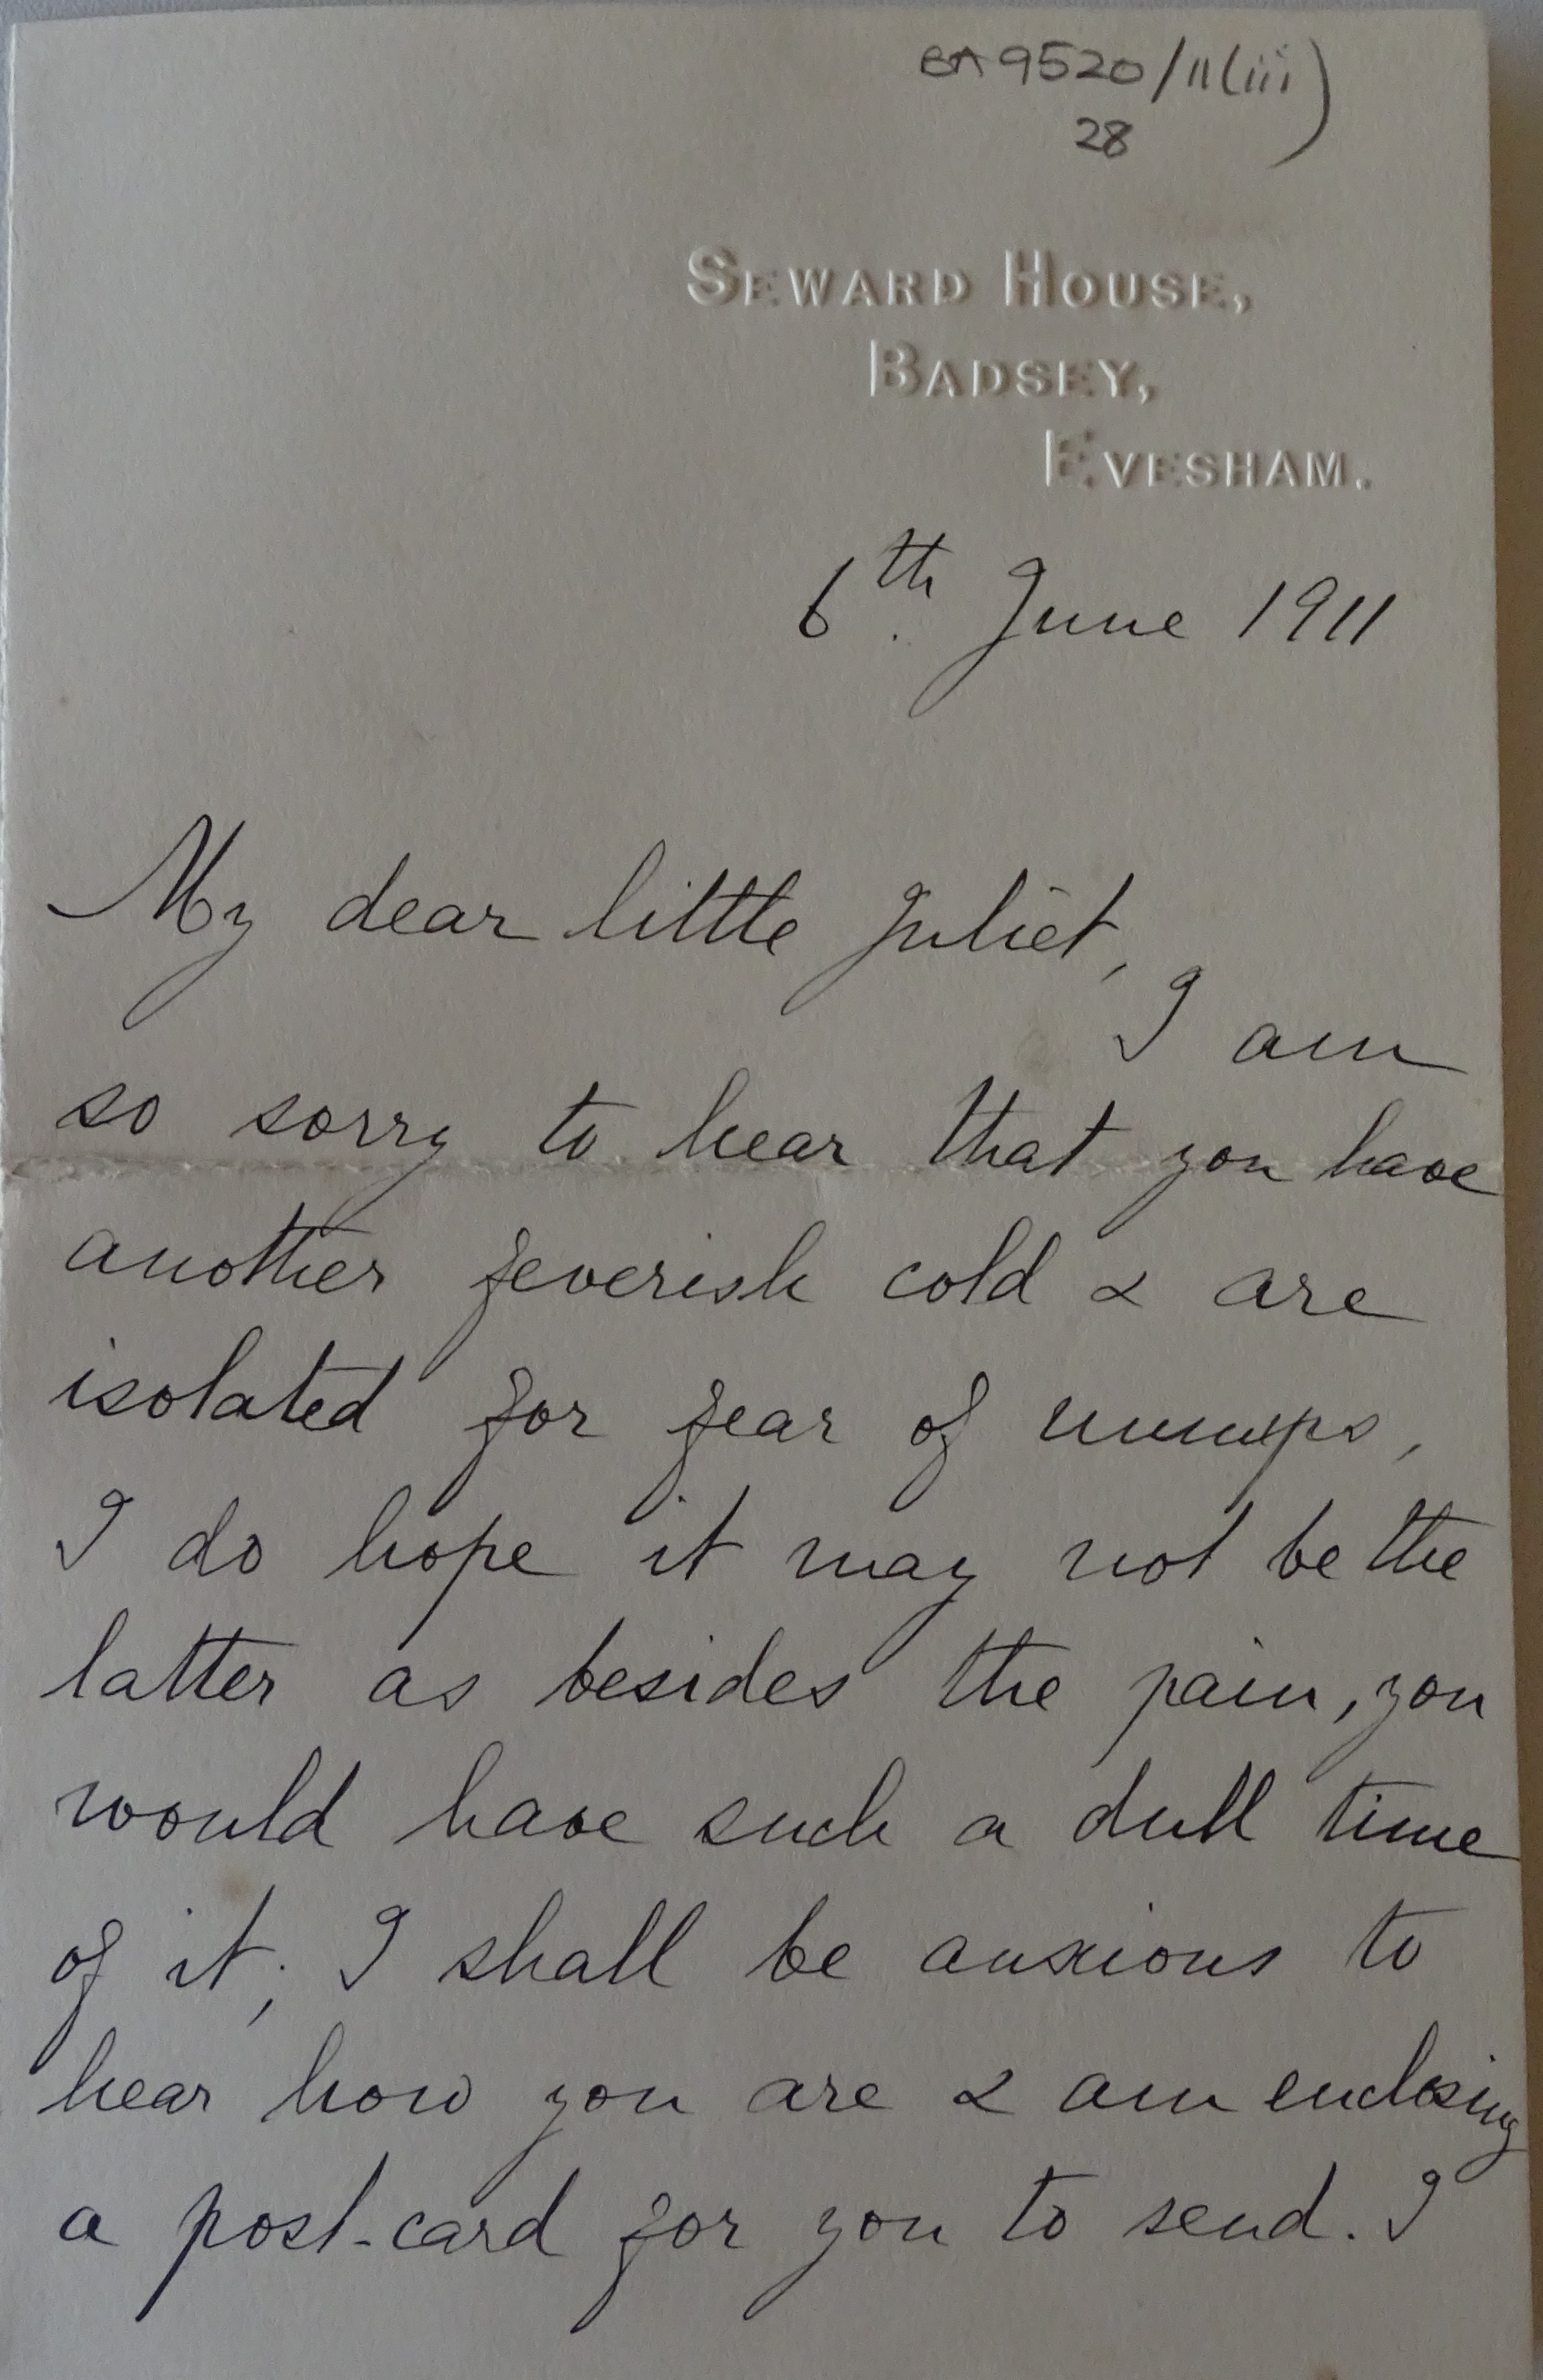 BA 9520/11(iii)
28
SEWARD HOUSE,
BADSEY,
EVESHAM.
6th. June 1911
My dear little Juliet,
I am
so sorry to hear that you have
another feverish cold & are
isolated for fear of mumps,
I do hope it may not be the
latter as besides the pain, you
would have such a dull time
of it; I shall be anxious to
hear how you are & am enclosing
a post-card for you to send. I